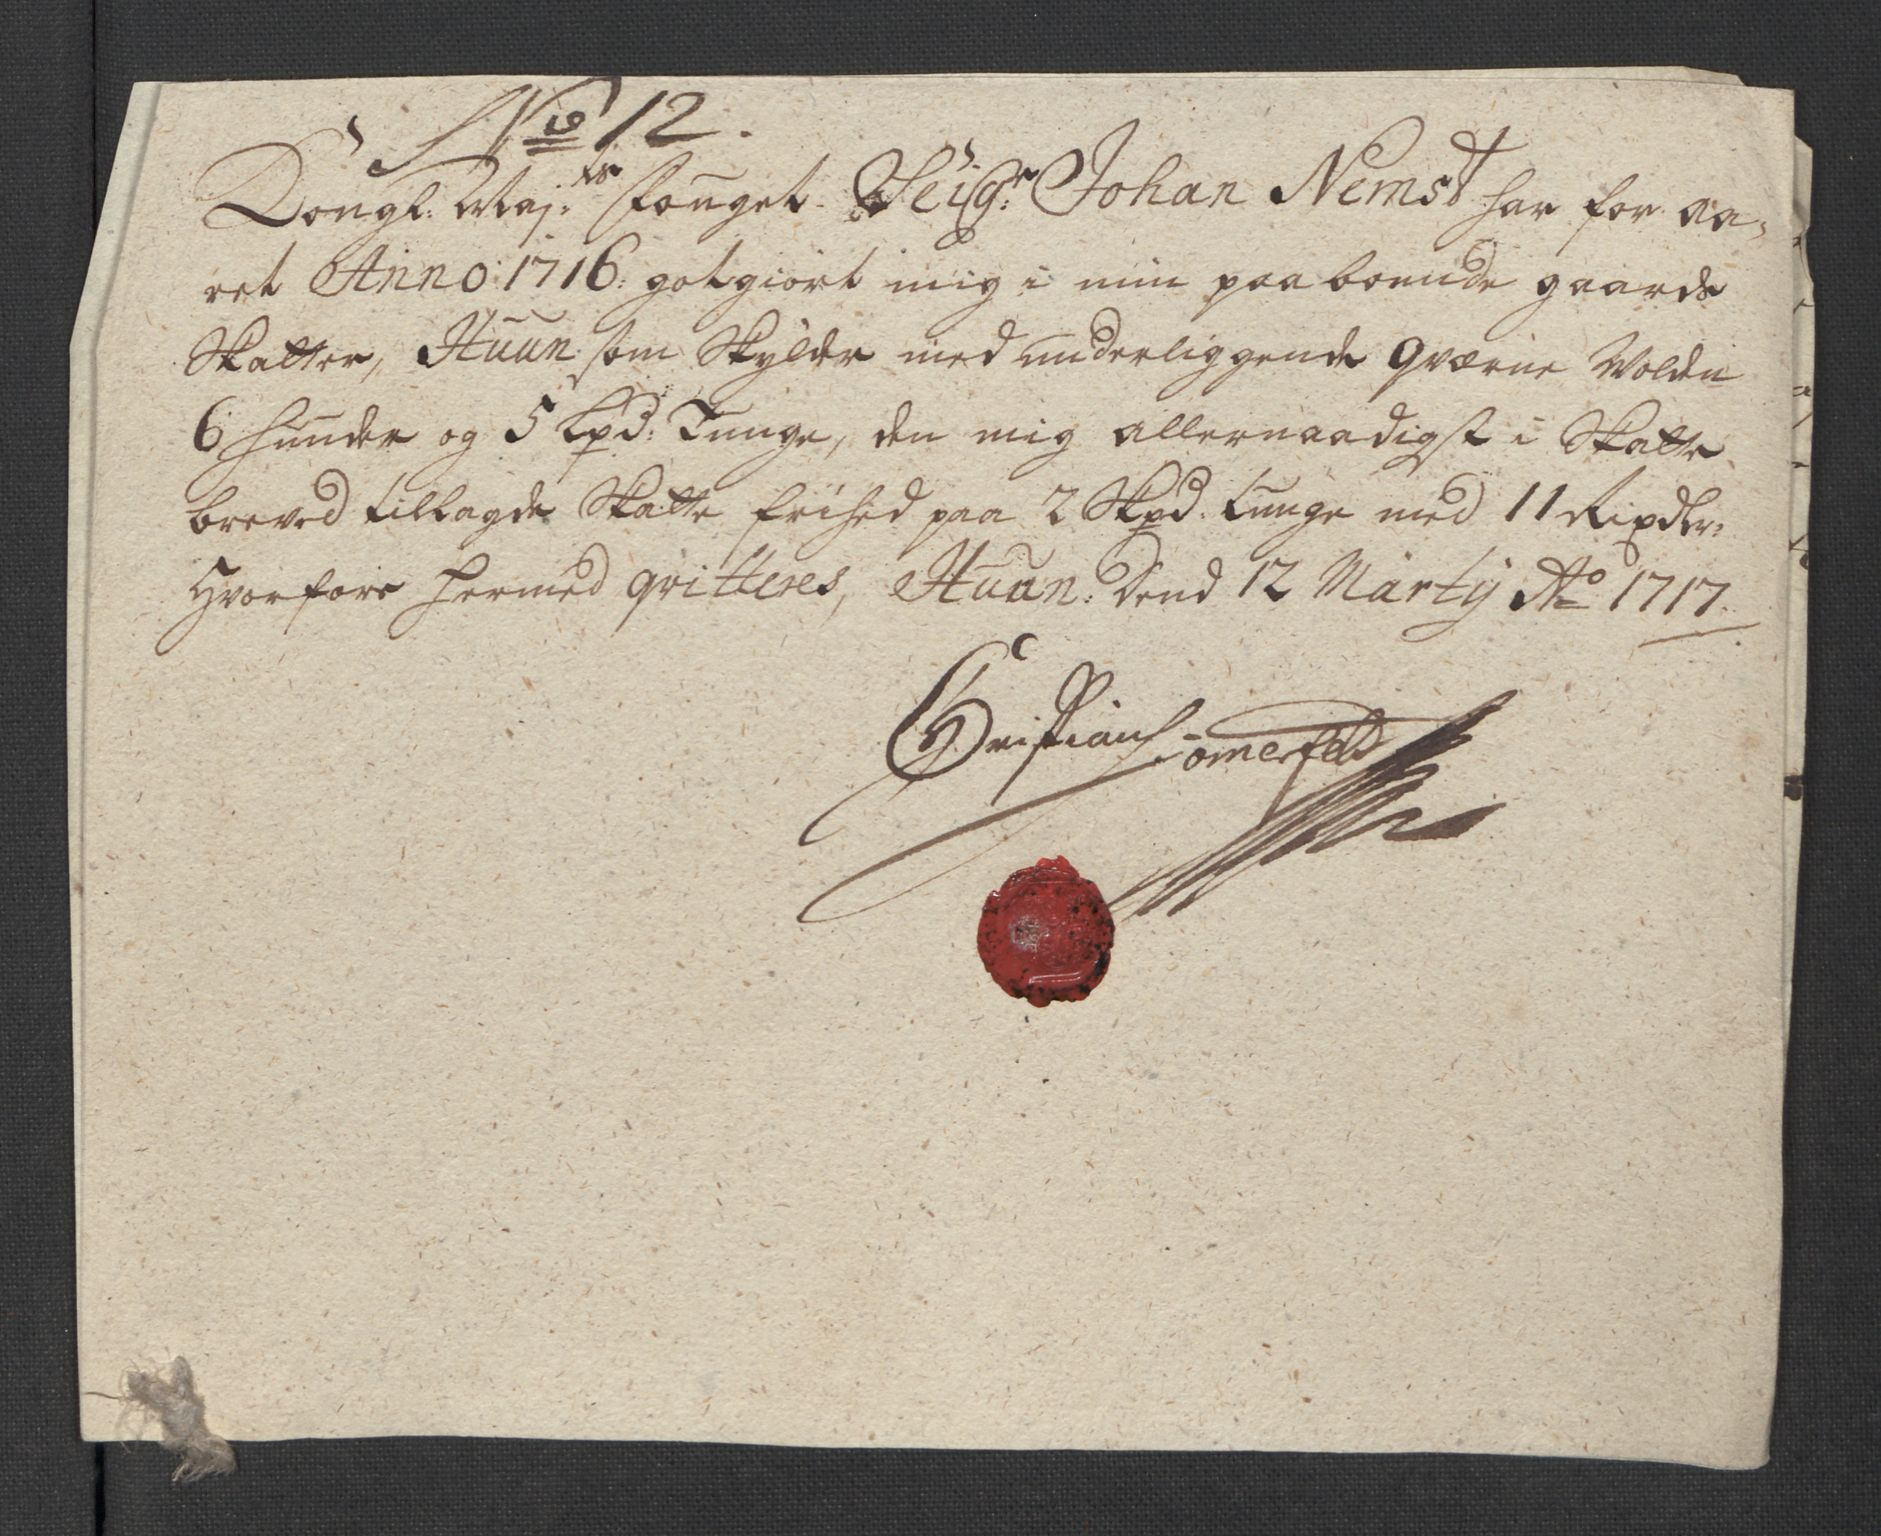 No 12.
Kongl: Maj:ts fouget Seigr: Johan Nemst har for aa,
ret Anno 1716: gotgiort mig i min paaboende gaards
Skatter, Huun som Skylder med underliggende Qværne Wolden
6 hunder og 5 Lpd: Tunge, den mig allernaadigst i Skatte
breved tillagde Skatte frihed paa 2 Skpd. tunge med 11 Rixdlr:
Hvorfore hermed qvitteres, Huun: Dend 12 Marty Ao 1717.
Christian Somerfeld